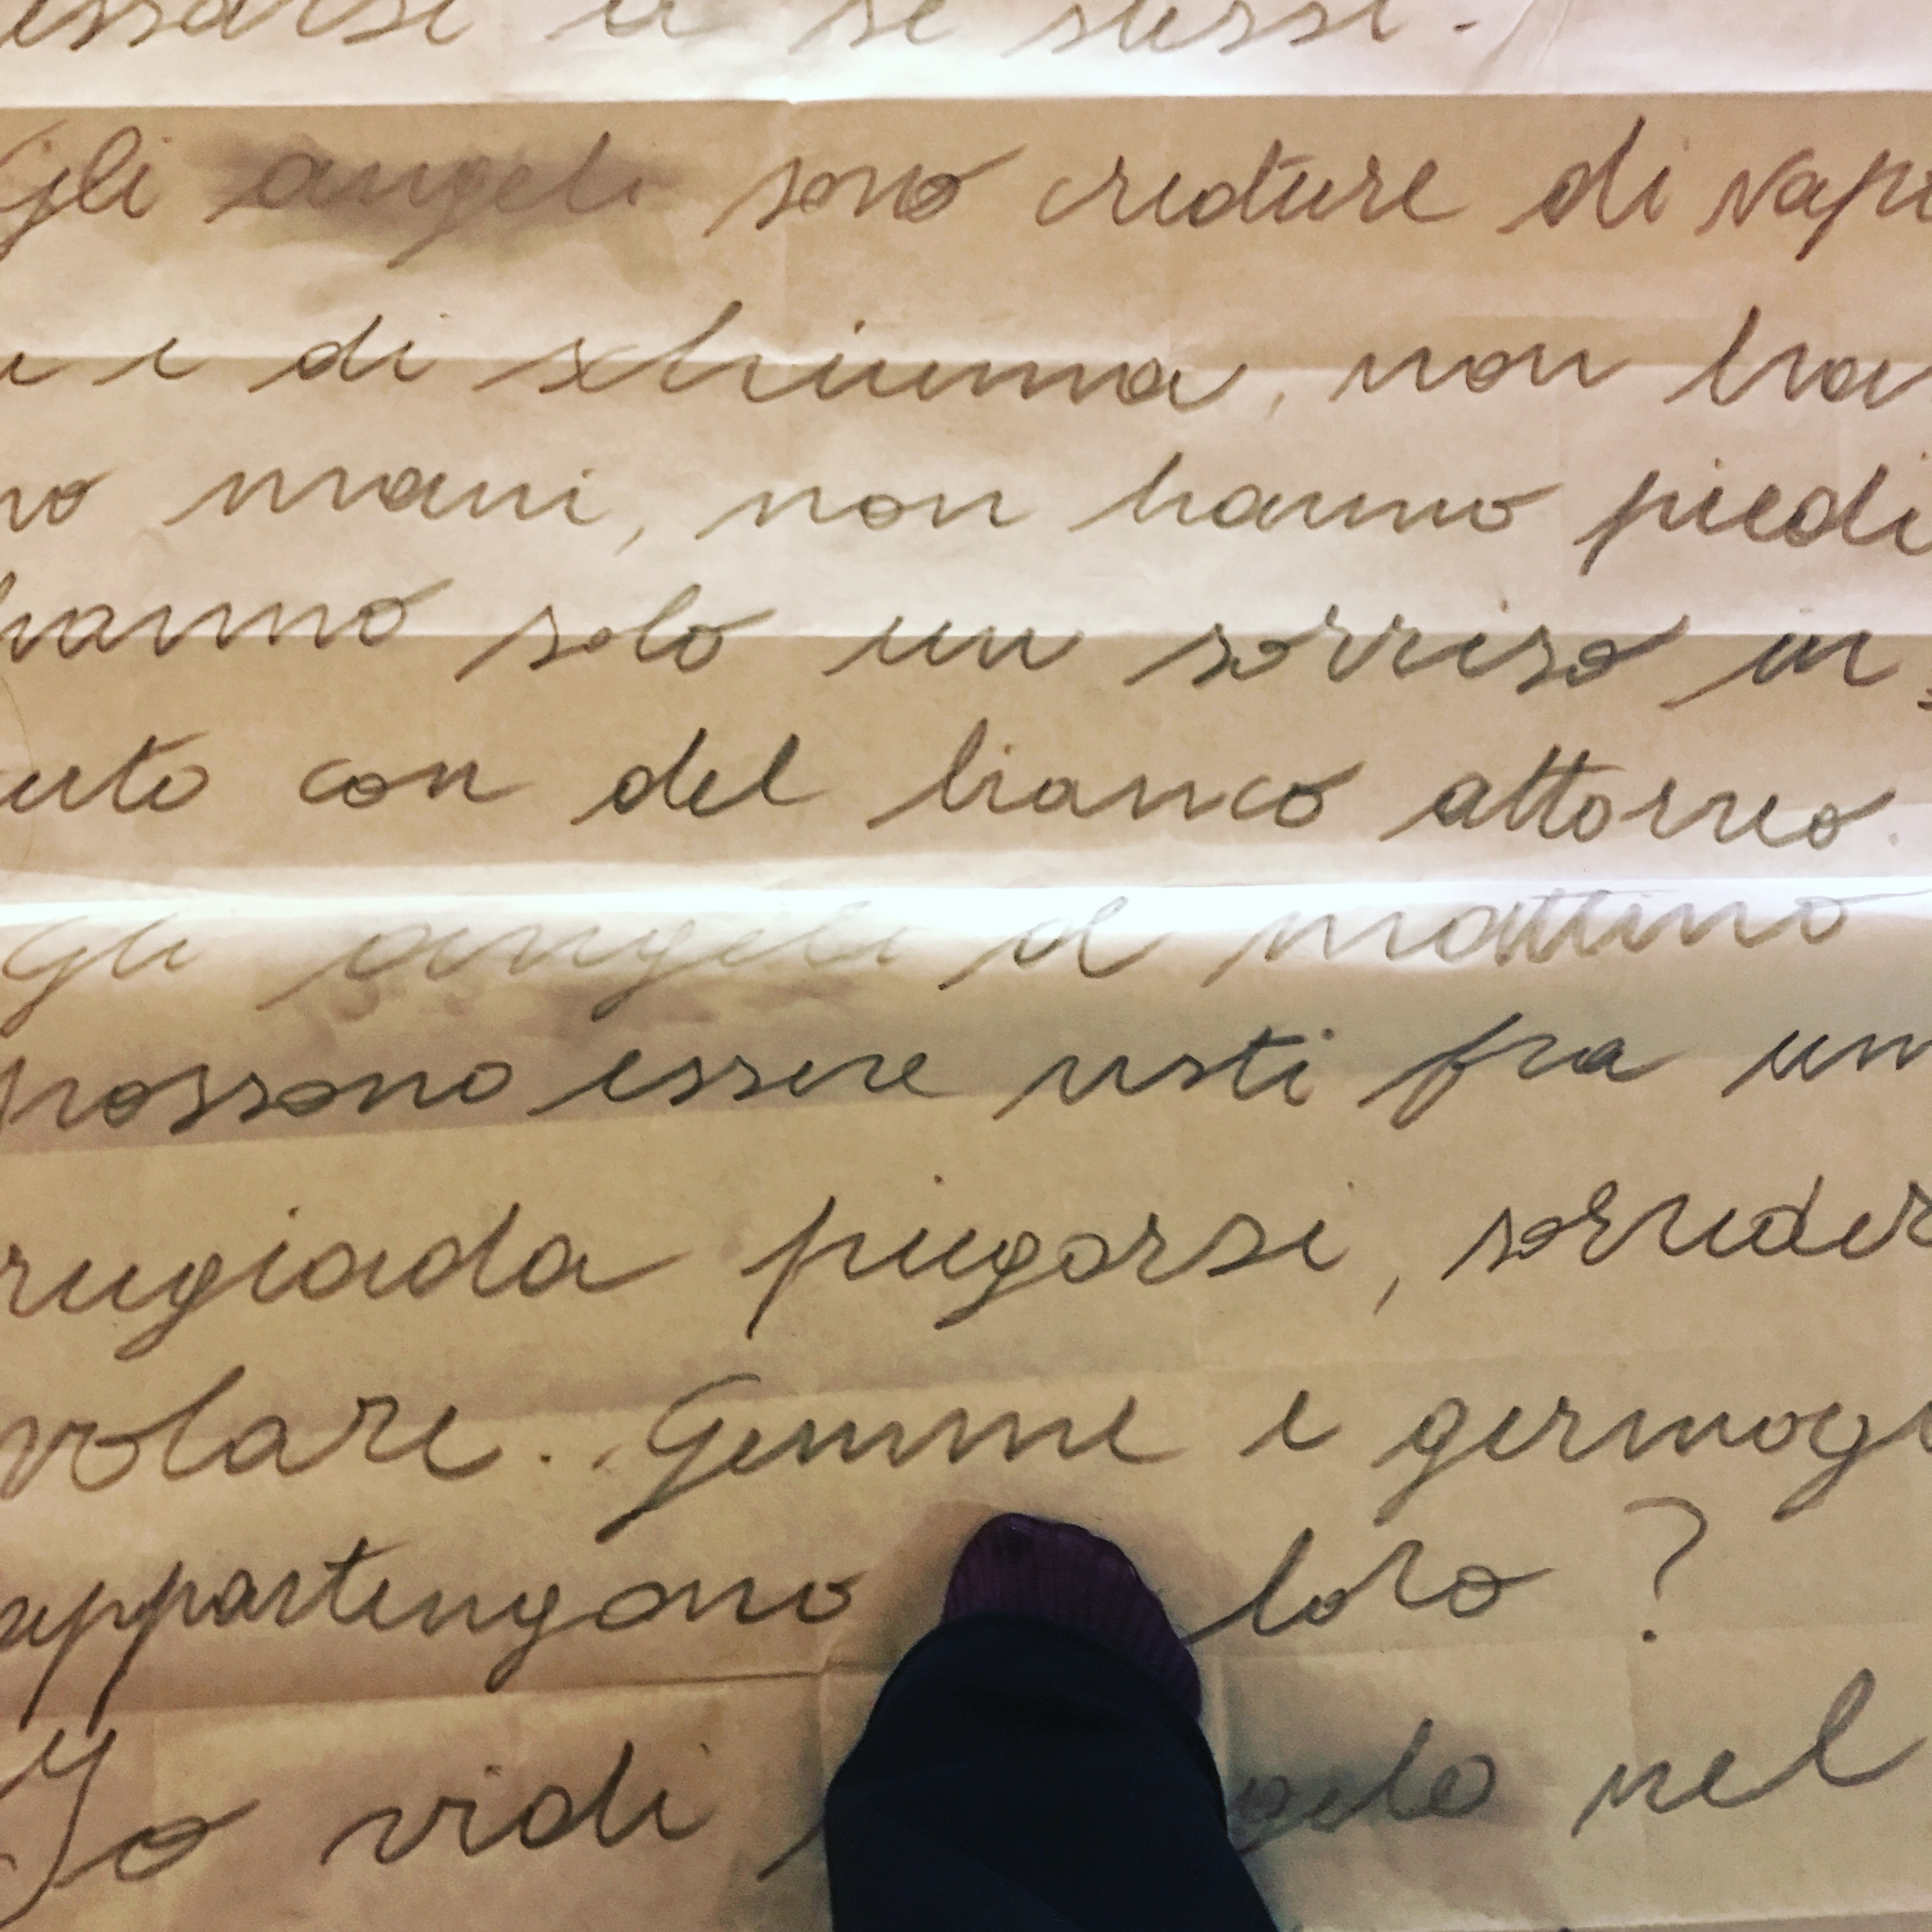 essarsi a se stessi.
Gli angeli sono creature di vap
e di schiuma, non han
no mani, non hanno piedi
hanno solo un sorriso in
uto con del bianco attorno.
Gli angeli al mattino
possono essere visti fra un
rugiada piegarsi, sorrider
volare. Gemme e germog
appartengono loro ?
Io vidi gelo nel